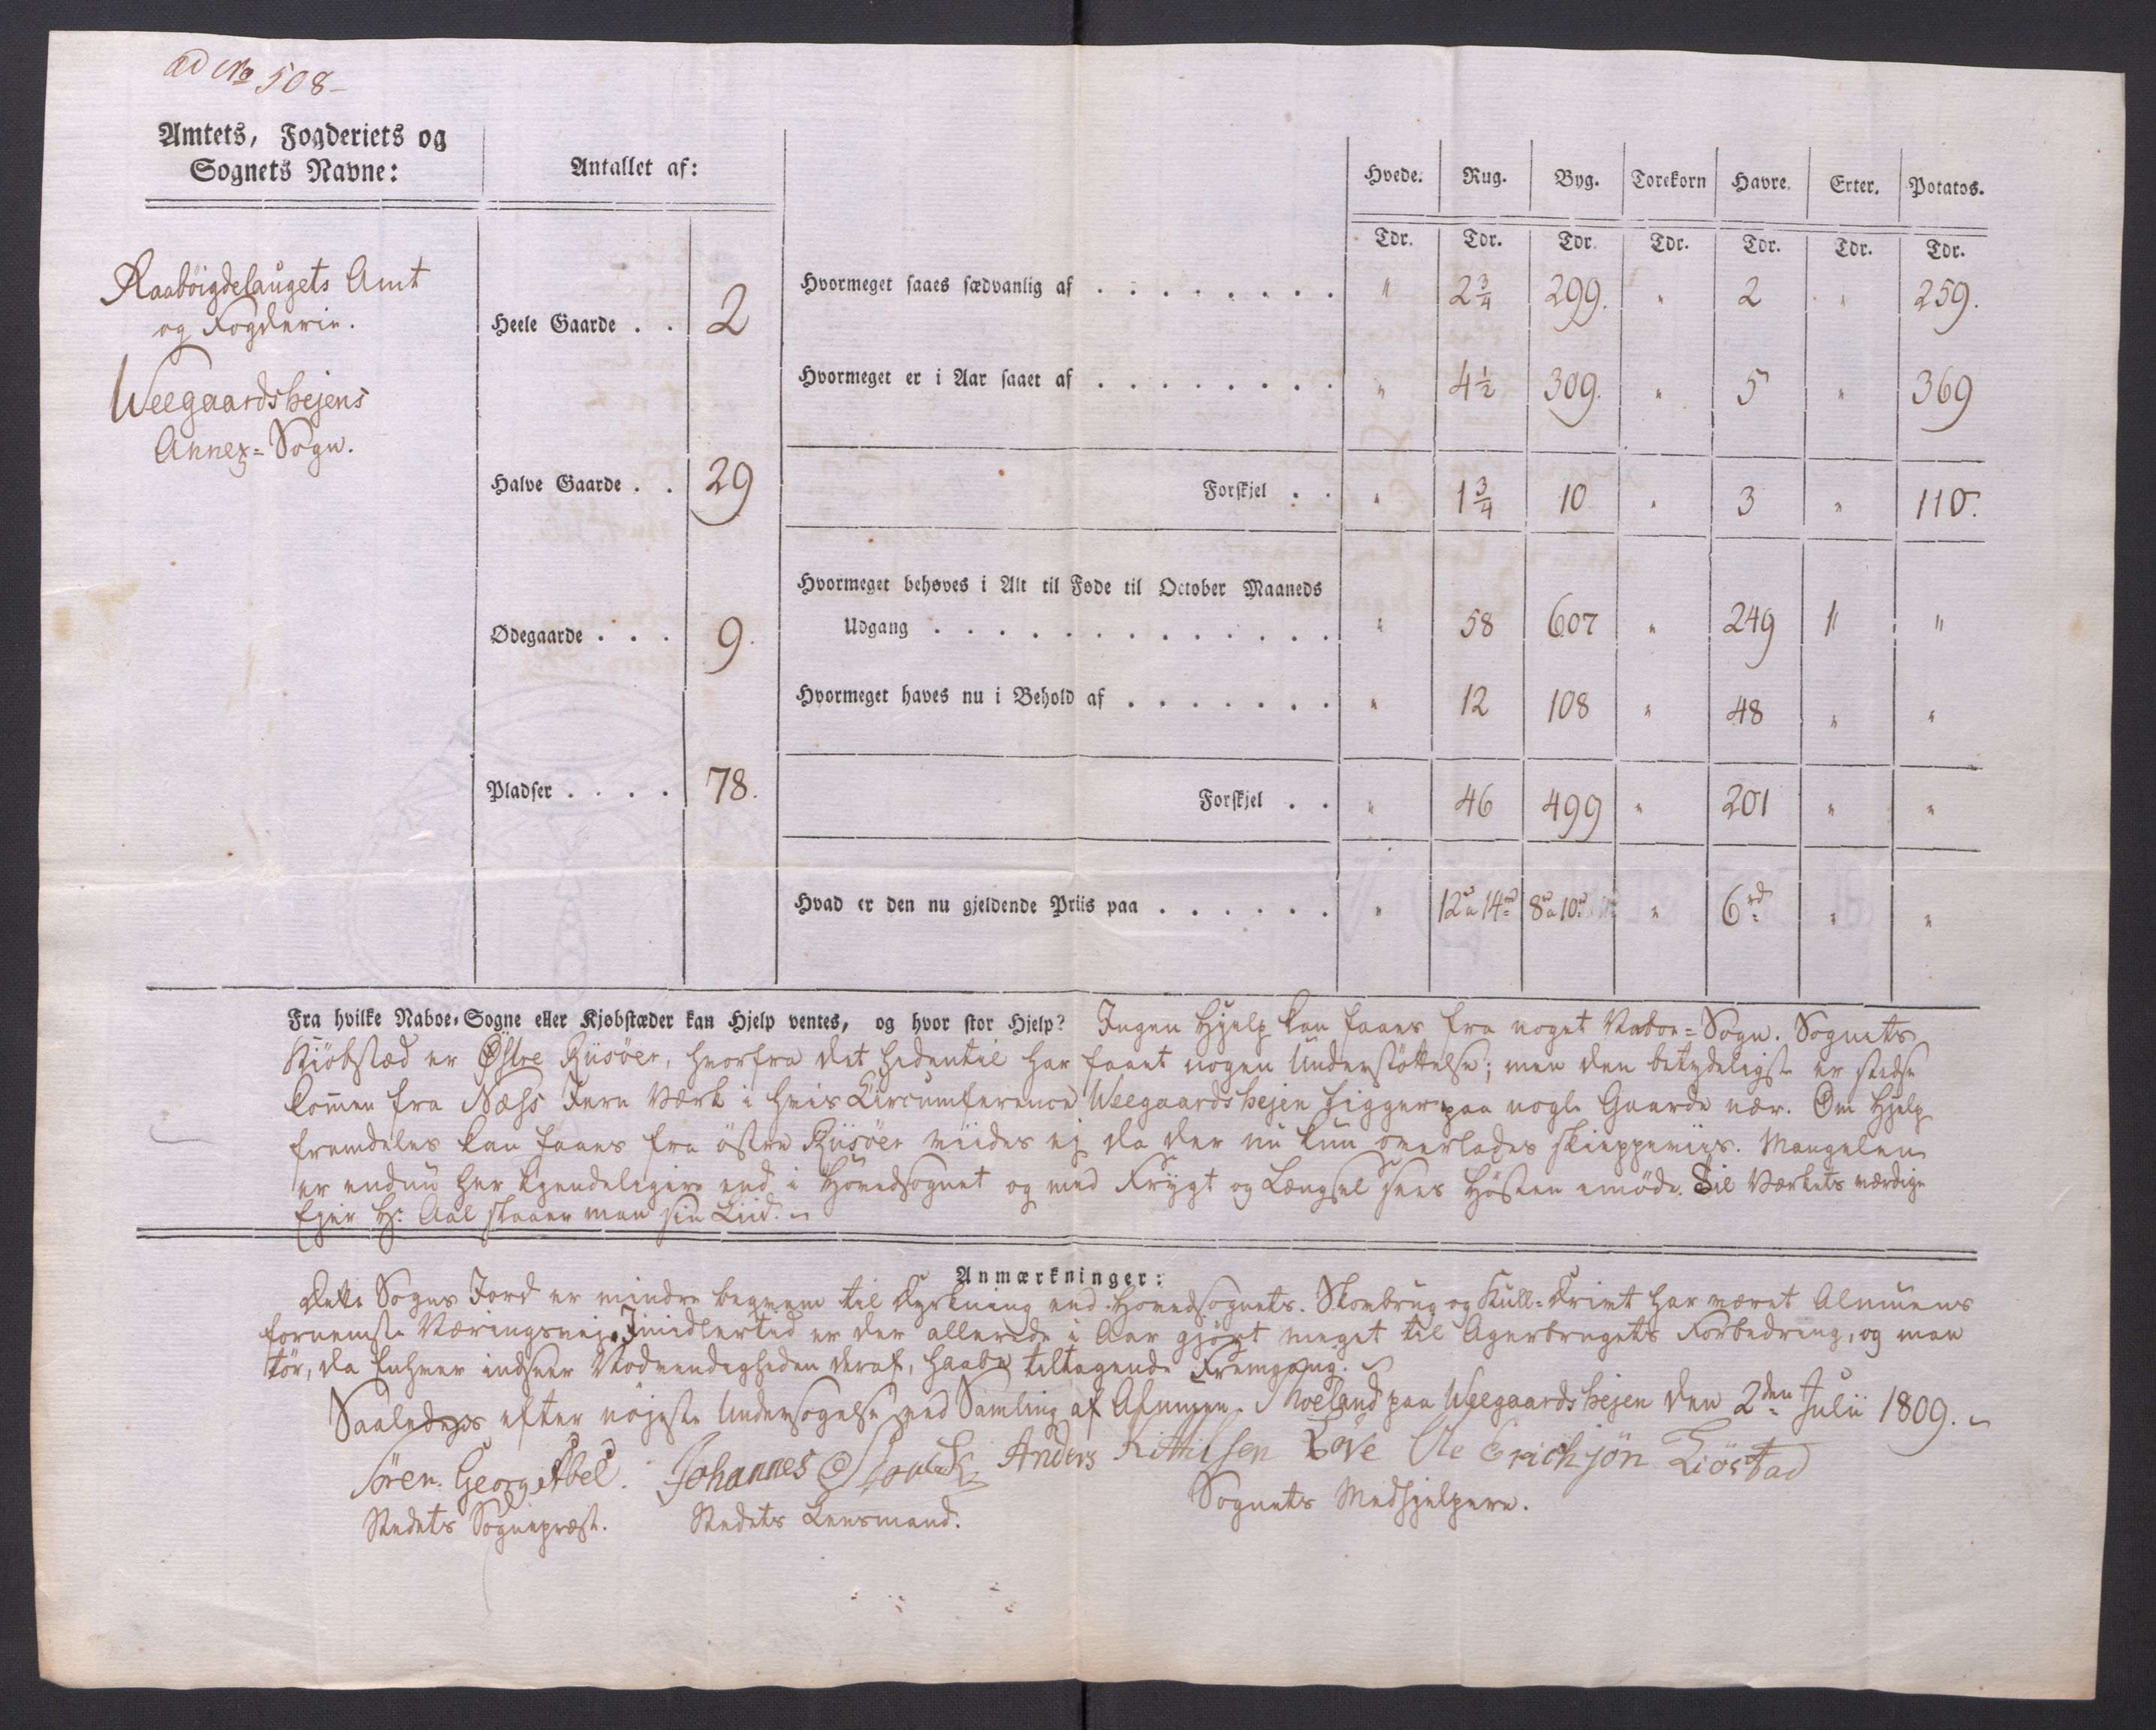 ad No 508-
Amtets, Fogderiets og
Sognets Navne:
Antallet af:
Hvede. Rug. Byg. Torekorn Havre. Erter. Potatos.
Tdr. Tdr. Tdr. Tdr. Tdr. Tdr. Tdr.
Raabøigdelaugets Amt
og Fogderie.
Weegaardshejens
Annex=Sogn.
Heele Gaarde . . 2
Halve Gaarde . . 29
Ødegaarde . . . 9.
Pladser . . . . 78.
Hvormeget saaes sædvanlig af . . . . . . . . " 2 3/4 299. " 2 " 259.
Hvormeget er i Aar saaet af . . . . . . . . " 4 1/2 309. " 5 " 369
Forskjel . . " 1 3/4 10 " 3 " 110.
Hvormeget behøves i Alt til Føde til October Maaneds
Udgang . . . . . . . . . . . . . " 58 607 " 249 " "
Hvormeget haves nu i Behold af . . . . . . . " 12 108 " 48 " "
Forskjel . . " 46 499 " 201 " "
Hvad er den nu gjeldende Priis paa . . . . . . " 12 a 14 rd 8 a 10 rd " 6 rd " "
Fra hvilke Naboe-Sogne eller Kjøbstæder kan Hjelp ventes, og hvor stor Hjelp? Ingen Hjelp kan faaes fra noget Naboe=Sogn. Sognets
Kiöbstæd er Østre Riisöer, hvorfra det hidentil har faaet nogen Understöttelse; men den betydeligste er stedse
kommen fra Næss Jern Værk i hvis Circumference Weegaardshejen ligger paa nogle Gaarde nær. Om Hjelp
fremdeles kan faaes fra östre Riisöer viides ej da der nu kun overlades skieppeviis. Mangelen
er endnu her kjendeligere end i Hovedsognet og med Frygt og Længsel sees Hösten imöde. Til Værkets værdige
Ejer Hr. Aal staaer man sin Liid.
Anmærkninger:
Dette Sogns Jord er mindre beqvem til Dyrkning end Hovedsognets. Skovbrug og Kull=Drivt har været Almuens
fornemste Næringsvej. Imidlertid er der allerede i Aar gjört meget til Agerbrugets Forbedring, og man
tör, da Enhver indseer Nödvendigheden deraf, haabe tiltagende Fremgang.
Saaledes efter nöjeste Undersögelse ved Samling af Almuen. Moeland paa Weegaardshejen den 2den Julii 1809.
Sören Georg Abel. Johannes Anders Kittilsen Löve Ole Erichsön Liöstad
Stedets Sognepræst. Stedets Lensmand. Sognets Medhjelpere.